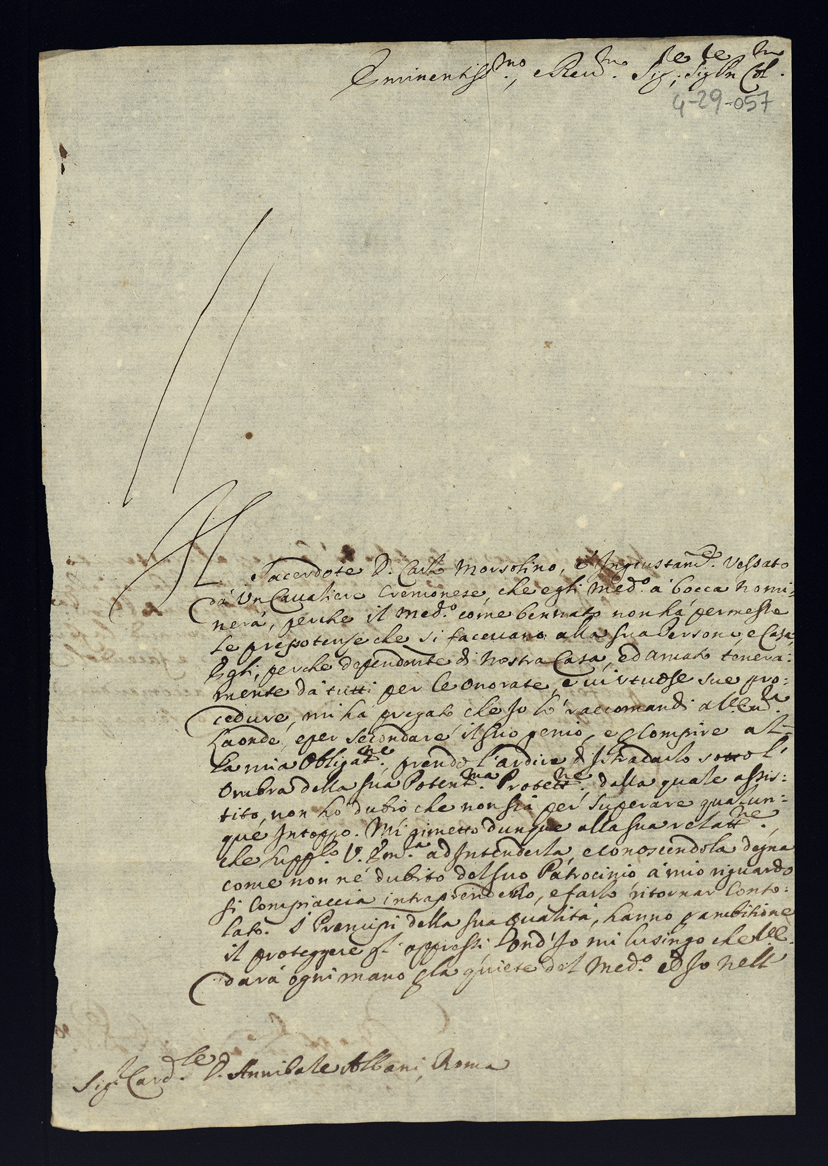 Eminentiss.mo, e Rev.mo Sig.re, Sig.re Pn Col.mo
4-29-057
Il Sacerdote D. Carlo Morsolino, è Ingiustam.e Vessato
dà Un Cavaliere Cremonese, che egli Med.o à bocca nomi-
nerà, perche il Med.o come bennato non hà permesse
le prepotenze che si facevano alla sua Persona e Casa,
Egli, perche dependente di Nostra Casa, ed amato tenera-
mente dà tutti per le onorate, e virtuose sue pro-
cedure, mi hà pregato che Io lo raccomandi all'Em.a
Laonde, e per secondare il suo genio, e Compire al-
la mia Obligat.ne, prendo l'ardire d'Istradarlo sotto l'
Ombra della sua Potent.ma Protett.ne, dalla quale assis-
tito, non hò dubio che non sia per Superare qualun-
que Intoppo. Mi rimetto dunque alla sua relatt.ne,
che suppl.o V. Em.a ad Intenderla, e conoscendola degna
come non ne dubito del suo Patrocinio à mio riguardo
si Compiaccia intraprenderlo, e farlo ritornar Conso-
lato. I Prencipi della sua qualità, hanno p ambitione
il proteggere gl'oppressi Ond'Io mi lusingo che Ella
darà ogni mano p la quiete del Med.o ed Io nell
Sig.r Card.le D. Annibale Albani, Roma